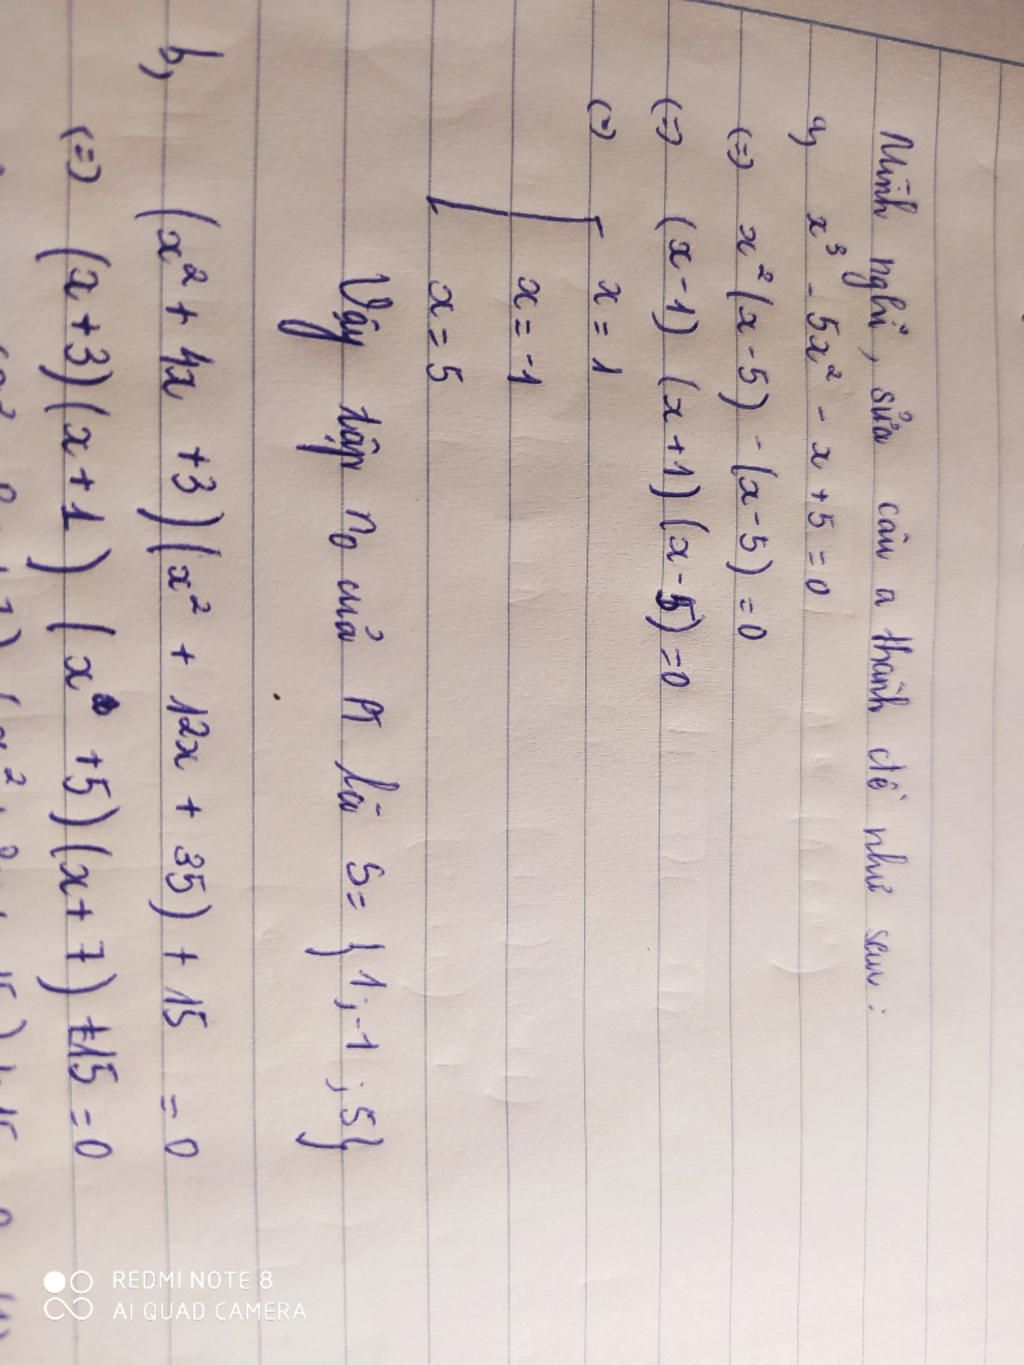 Mình nghĩ, sửa câu a thành đề như sau:
a, x³ - 5x² - x + 5 = 0
(=) x²(x - 5) - (x - 5) = 0
(=) (x - 1) (x + 1) (x - 5) = 0
(=) [ x = 1
x = -1
x = 5
Vậy tập n₀ của PT là S = {1; -1; 5}
b, (x² + 4x + 3) (x² + 12x + 35) + 15 = 0
(=) (x + 3) (x + 1) (x + 5) (x + 7) + 15 = 0
REDMI NOTE 8
AI QUAD CAMERA